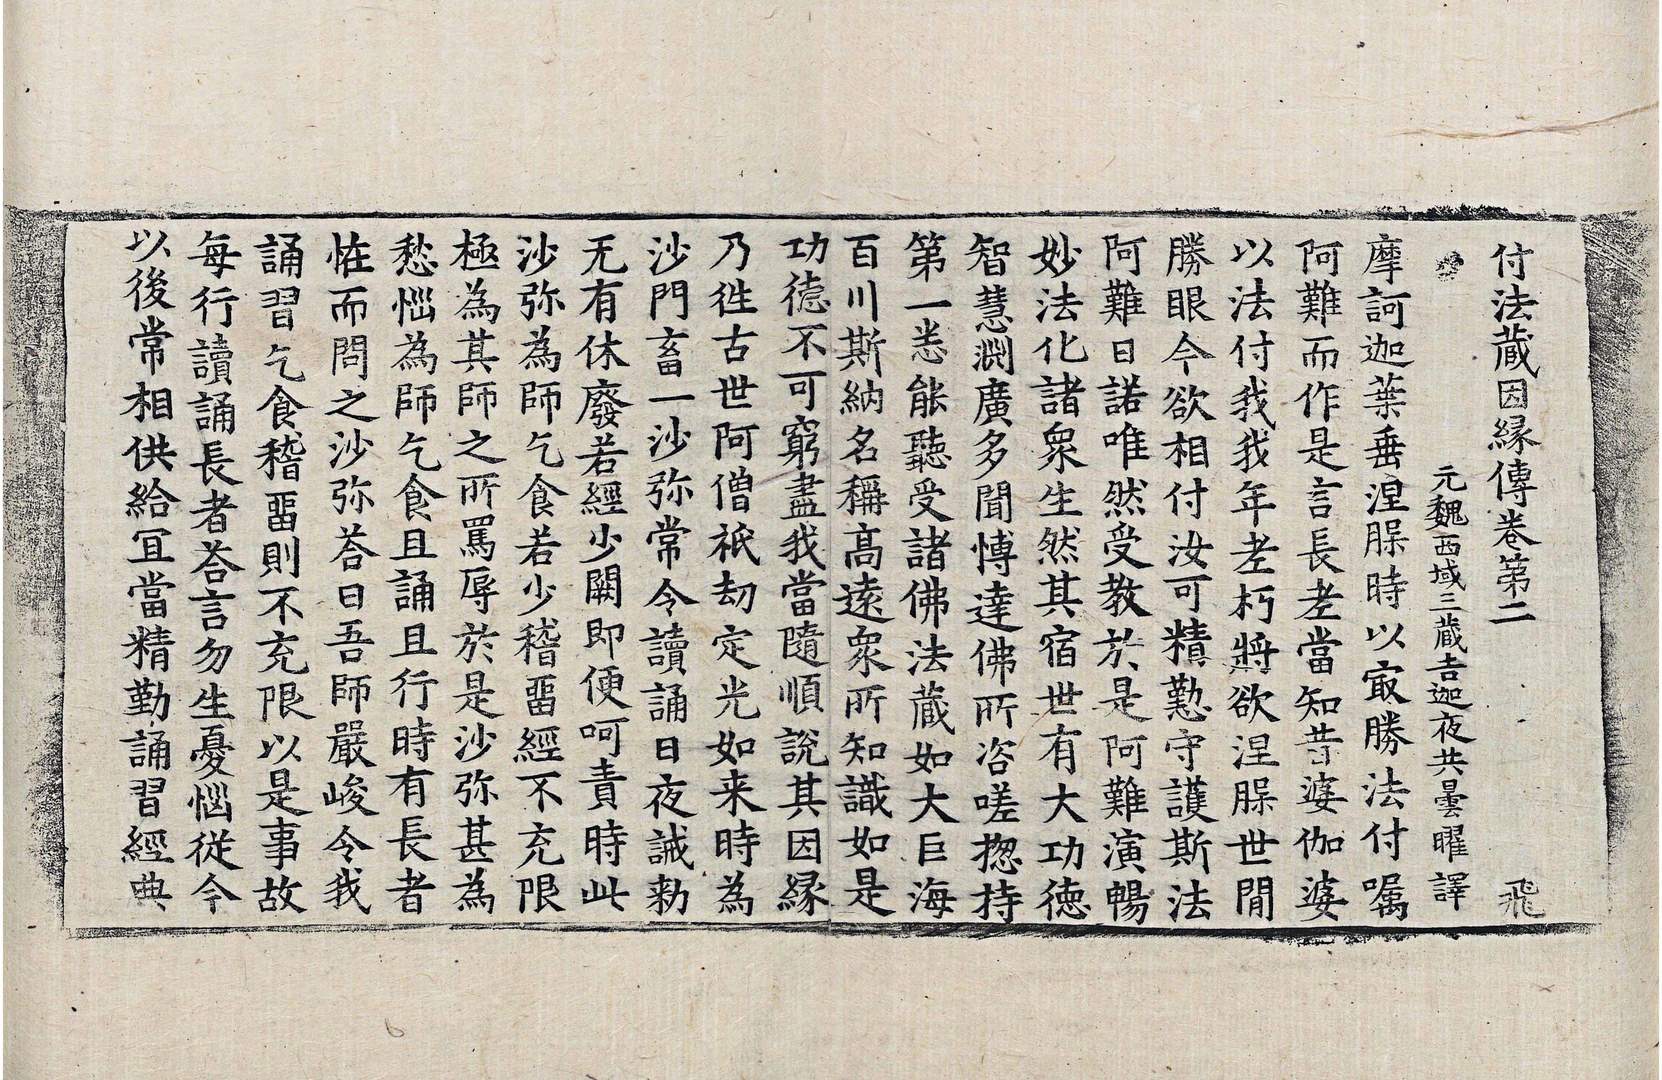 付法蔵因縁傳卷第二 飛
元魏西域三蔵吉迦夜共曇曜譯
摩訶迦葉垂涅脵時以㝡勝法付嘱
阿難而作是言長老當知昔婆伽婆
以法付我我年老朽將欲涅脵世間
勝眼今欲相付汝可精懃守護斯法
阿難曰諾唯然受教於是阿難演暢
妙法化諸衆生然其宿世有大功德
智慧渊廣多聞博達佛所咨嗟揔持
第一悉能聽受諸佛法蔵如大巨海
百川斯納名稱髙逺衆所知識如是
功德不可窮盡我當隨順說其因縁
乃徃古世阿僧祇劫定光如来時為
沙門畜一沙弥常令讀誦日夜誡勑
无有休廢若經少闕即便呵責時此
沙弥為師乞食若少稽畱經不充限
極為其師之所罵辱於是沙弥甚為
愁惱為師乞食且誦且行時有長者
恠而問之沙弥荅曰吾師嚴峻令我
誦習乞食稽畱則不充限以是事故
每行讀誦長者荅言勿生憂惱從今
以後常相供給冝當精勤誦習經典